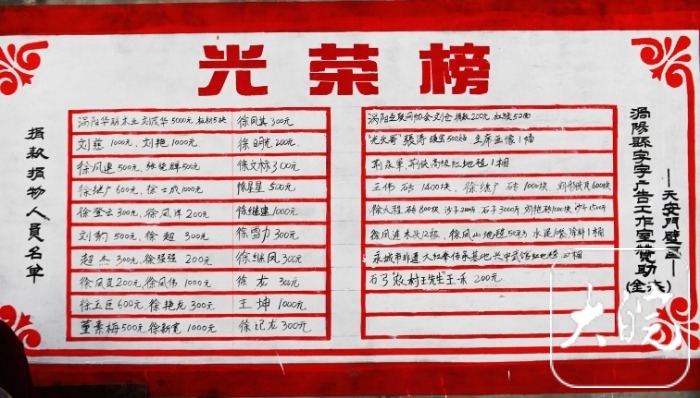 光荣榜
捐款捐物人员名单
涡阳华联木业刘茂华5000元
徐凤其300元
刘慈1000元、刘艳1000元
徐明光200元
徐凤连500元
500元
徐文标300元
600元、徐士成1000元
徐星星500元
徐奎云300元、徐凤伴200元
徐继建1000元
刘豹500元、徐超300元
徐雪力300元
赵杰300元、徐强强200元
徐继凤300元
徐凤良200元、徐凤伟1000元
徐龙300元
徐立臣600元、徐艳龙300元
王坤1000元
董素梅500元 徐新宽1000元
徐记龙300元
涡阳互联网协会刘仓捐款200元 红旗52面
"光头哥"张涛现金500元 主席画像1幅
高级红地毯1捆
王伟砖1400块、徐继广砖1000块
徐大程砖800块 沙子2000斤 石子3000斤 刘艳砖1000块 沙子1500斤
徐凤连木头12根、徐凤山地毯50平方 水泥10袋 涂料1桶
永城市非遗大红拳传承基地关中武馆红地毯四捆
石弓"农村王先生"王禾200元
涡阳县字字广告工作室赞助
——天安门壁画——
(金光)
大皖